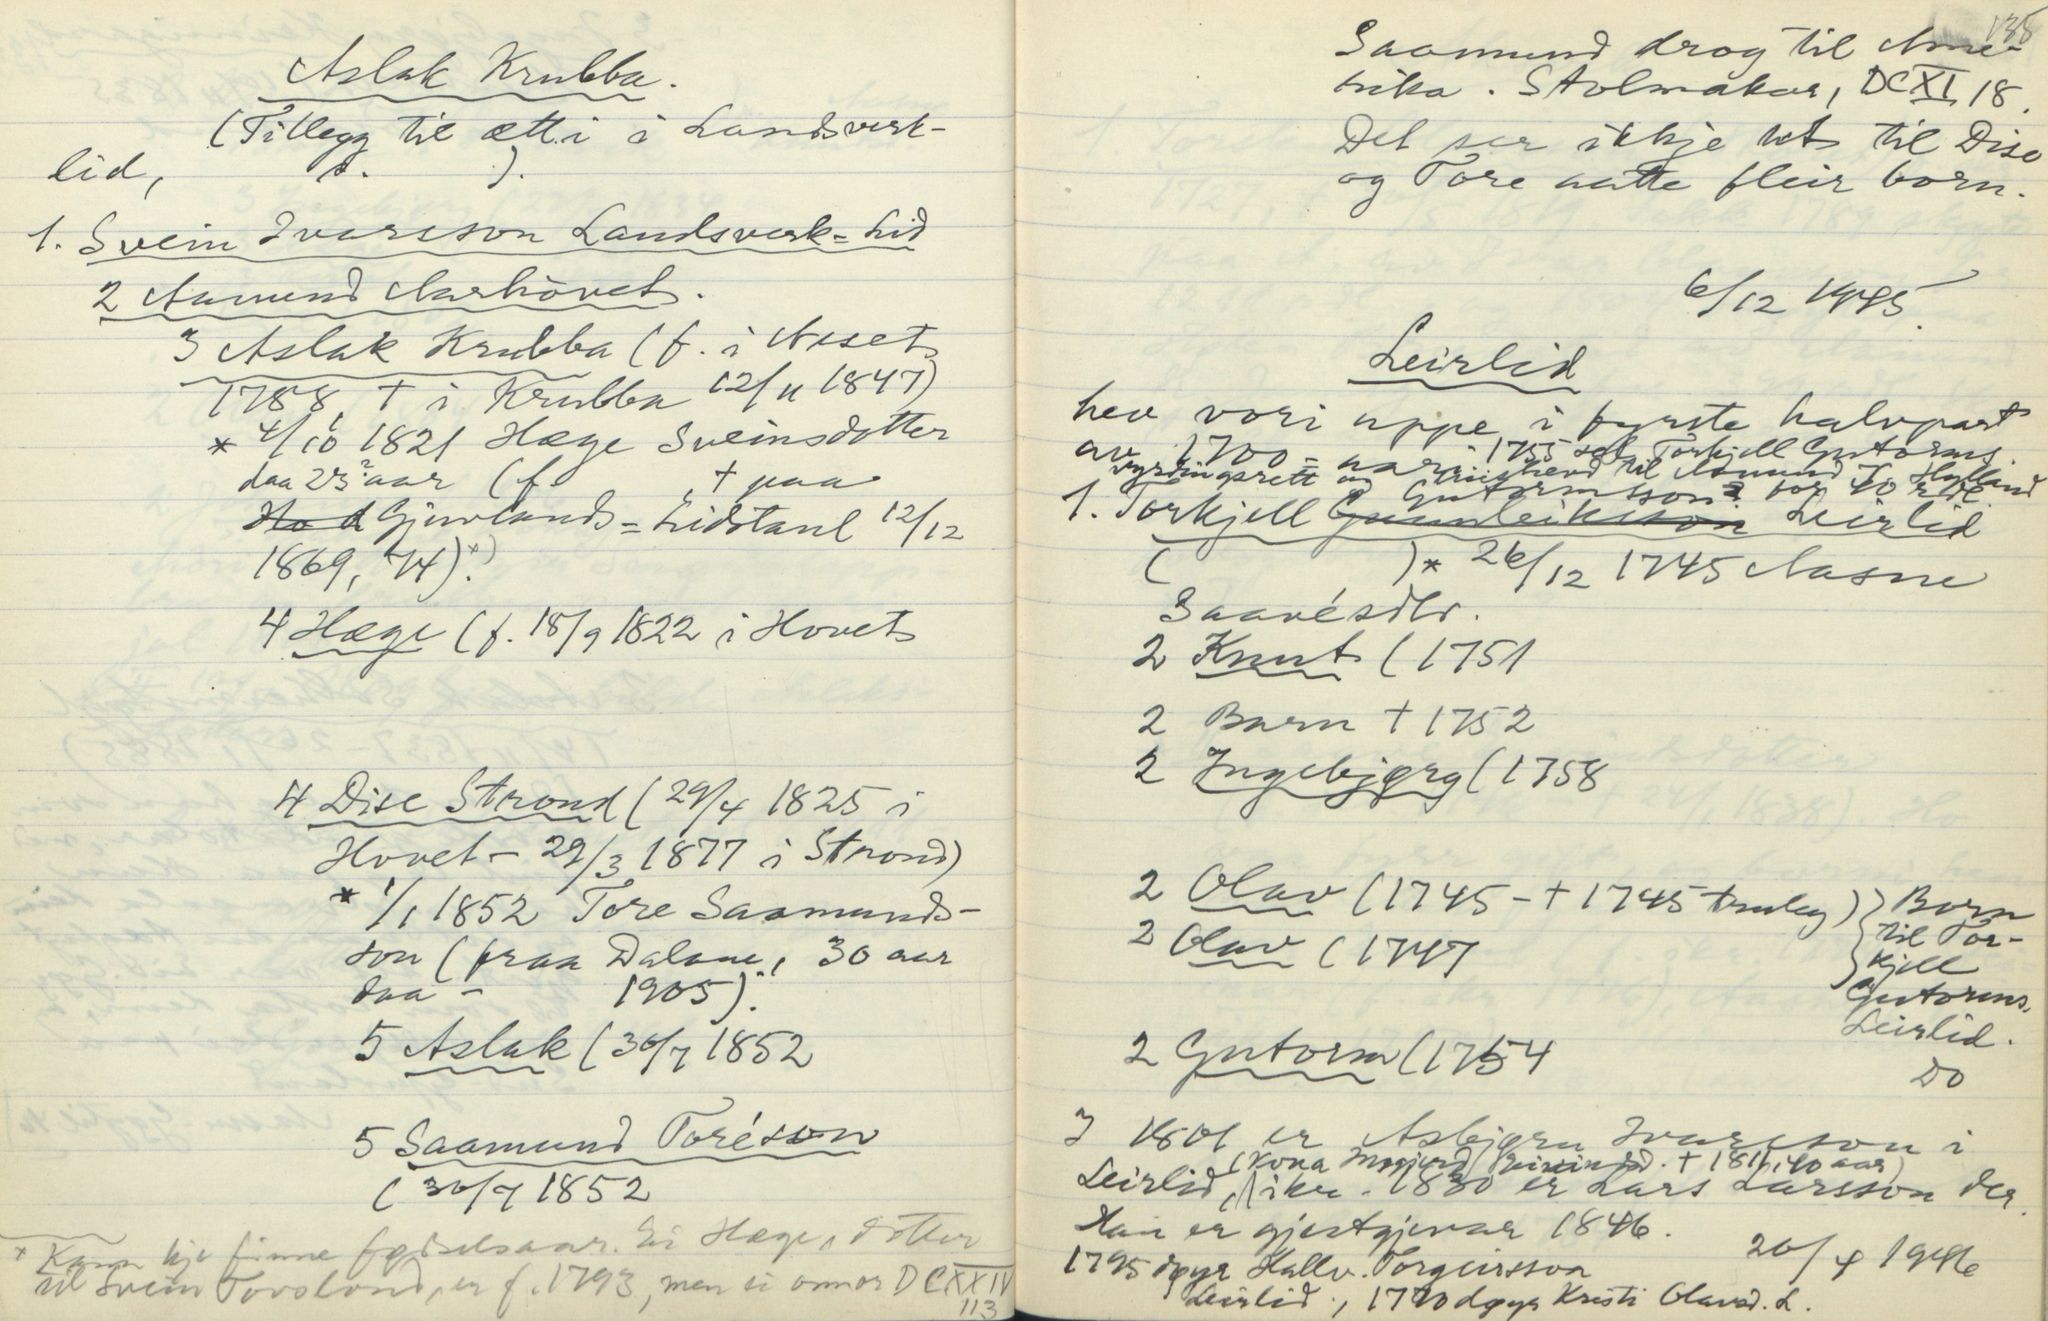 Aslak Krubba.
(Tillegg til ætti i Landsverk-
lid, s. ).
1. Svein Ivarsson Landsverk-Lid
2 Aamund Aarhövet.
3 Aslak Krubba (f. i Neset
1788, † i Krubba 12/11 1847)
* 4/10 1821 Hæge Sveinsdotter
daa 25 aar (f. , † paa
Gjuvlands-Lidstaul 12/12
1869, 74).*)
4 Hæge (f. 18/9 1822 i Hovet
4 Dise Strond (29/4 1825 i
Hovet - 29/3 1877 i Strond)
* 1/1 1852 Tore Saamunds-
son (fraa Dalane, 30 aar
daa - 1905).
5 Aslak (30/7 1852
5 Saamund Toresson
(30/7 1852
* Kann kje finne fødselsaar. Ei Hæge, dotter
til Svein Tovslond, er f. 1793, men ei onnor DCXXIV
113
135
Saamund drog til Ame-
rika. Stolmakar, DCXI, 18.
Det ser ikkje ut til Dise
og Tore aatte fleir born.
6/12 1945.
Leirlid
hev vori uppe i fyrste halvpart
av 1700-aari. 1755 sel Torkjell Gutorms.
bygslingsrett og hevd til Aamund Hylland
for 70 rdl
1. Torkjell Gunleiksson Gutormsson Leirlid
( )* 26/12 1745 Aasne
Saavésdtr.
2 Knut (1751
2 Barn † 1752
2 Ingebjørg (1758
2 Olav (1745 - † 1745 truleg) } Born
2 Olav (1747 } til Tor-
kjell
Gutorms.
Leirlid.
2 Gutorm (1754 Do
I 1801 er Asbjørn Ivarsson i
Leirlid, (kona † 1811, 40 aar)
ikr. 1830 er Lars Larsson der.
Han er gjestgjevar 1846.
20/4 1946
1795 døyr Hallv. Torgeirsson
Leirlid., 1770 døyr Kristi Olavsd. L.